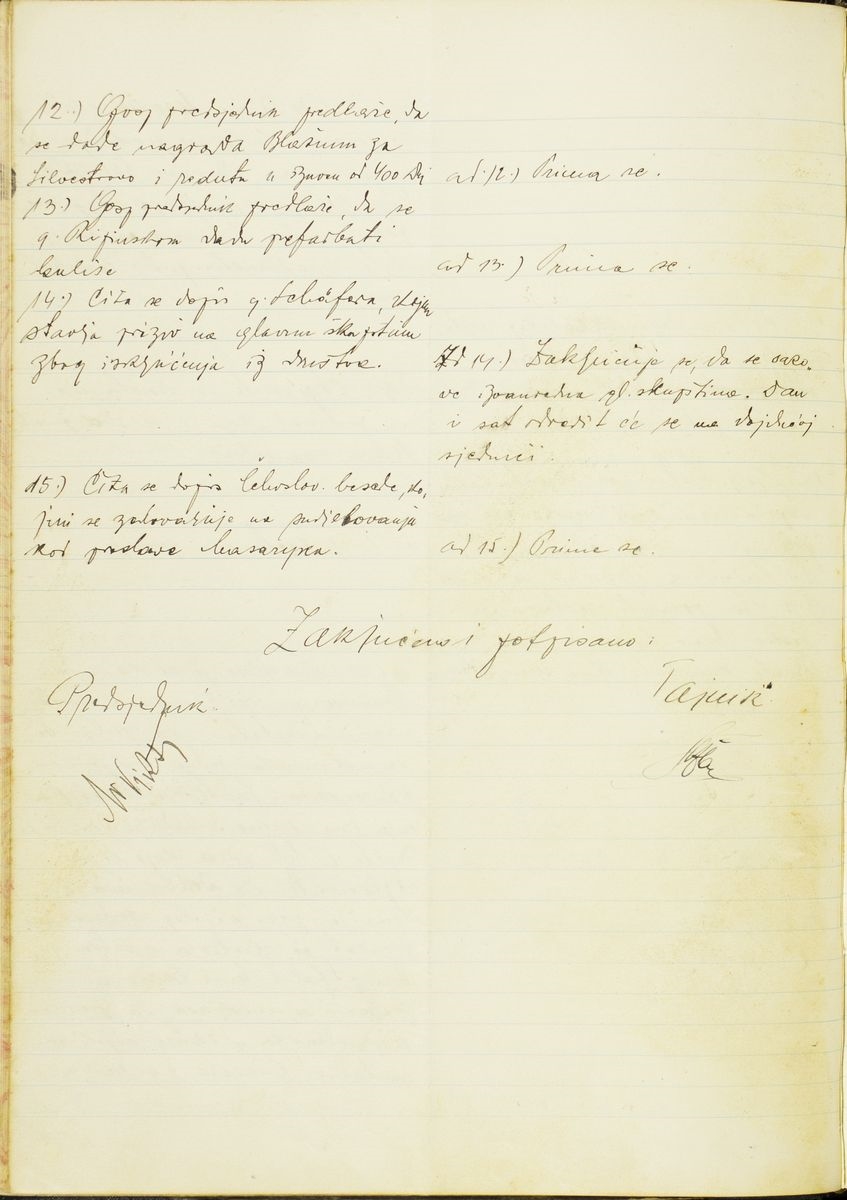 12.) Gosp predsjednik predlaže, da
se dade nagrada Blašium za
Silvestrovo i reduta u iznosu od 400 Din
ad. 12.) Prima se.
13.) Gosp predsjednik predlaže, da se
g. dadu prefarbati
kulise
ad 13.) Prima se.
14.) Čita se dopis g. Schäfera, kojim
stavlja priziv na glavnu skupštinu
zbog isključenja iz društva.
Ad 14.) Zaključuje se, da se sazo-
ve izvanredna gl. skupština. Dan
i sat odredit će se na dojdućoj
sjednici.
15.) Čita se dopis Čehoslov. besede, ko-
jim se zahvaljuje na sudjelovanju
kod proslave Masaryka.
ad 15.) Prima se.
Zaključeno i potpisano:
Predsjednik.
Tajnik